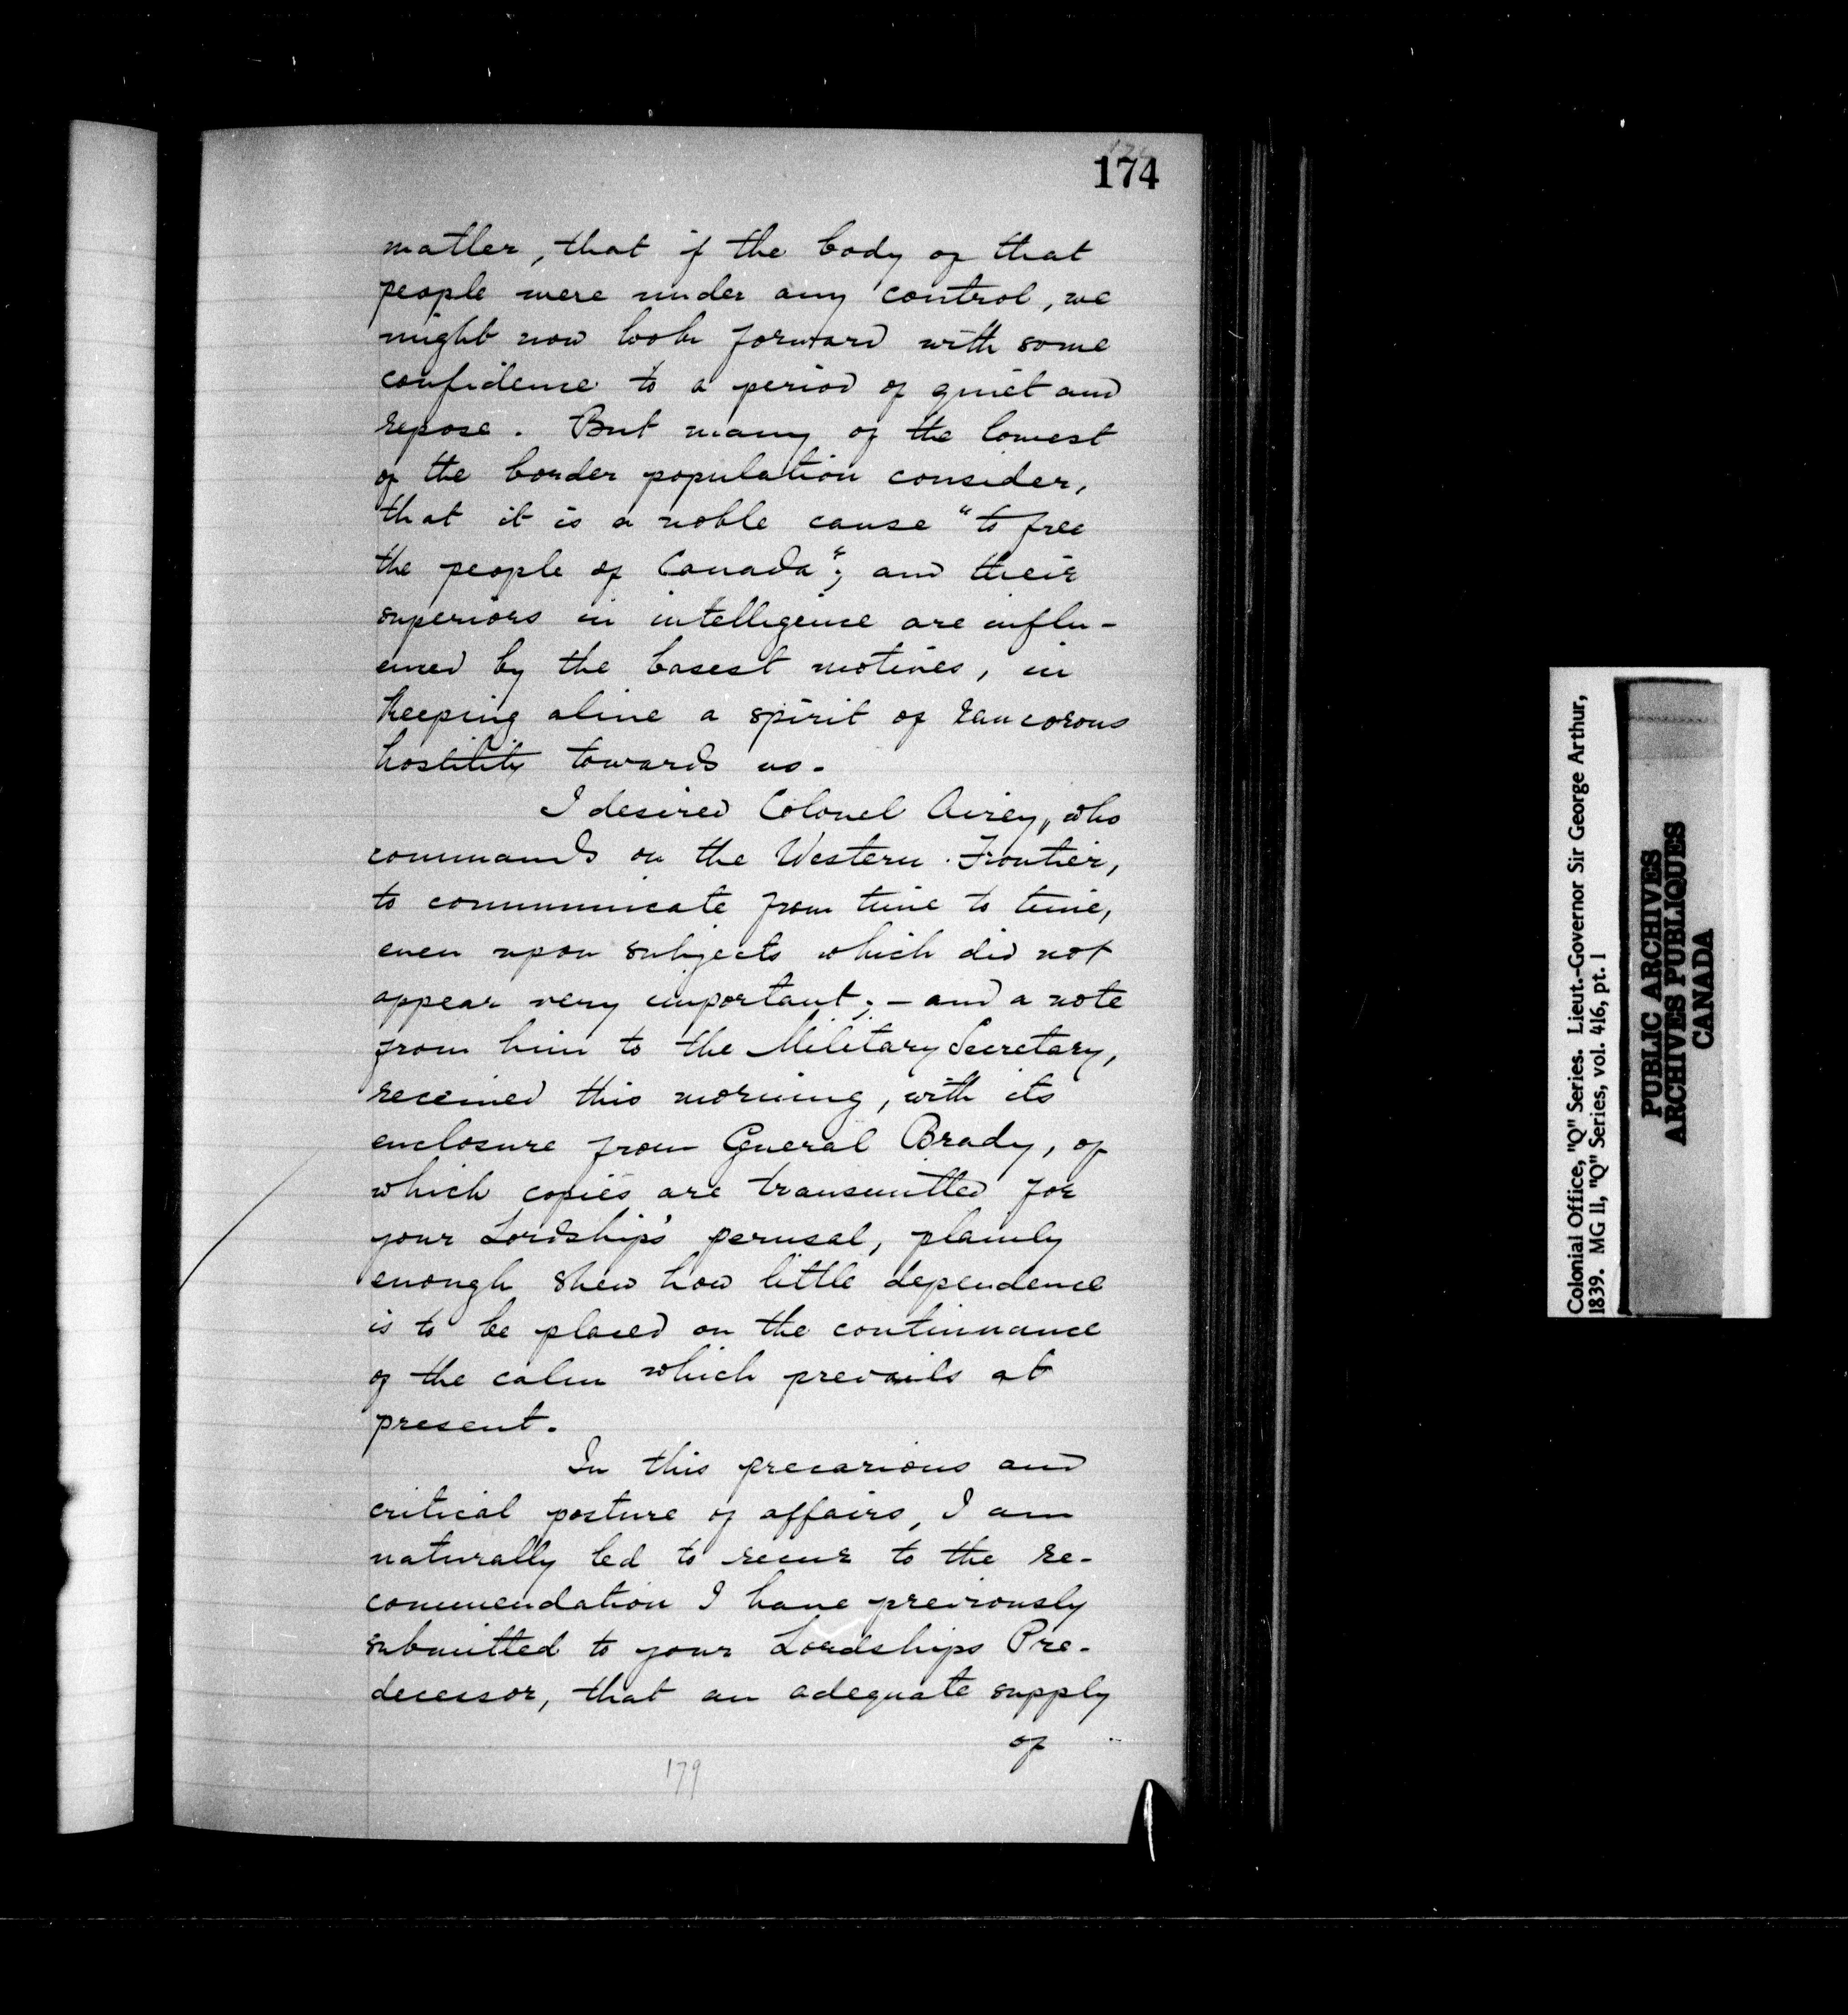 174
matter, that if the body of that
people were under any control, we
might now look forward with some
confidence to a period of quiet and
repose. But many of the lowest
of the border population consider,
that it is a noble cause "to free
the people of Canada"; and their
superiors in intelligence are influ-
enced by the basest motives, in
keeping alive a spirit of rancorous
hostility towards us.
I desired Colonel Airey, who
commands on the Western Frontier,
to communicate from time to time,
even upon subjects which did not
appear very important; - and a note
from him to the Military Secretary,
received this morning, with its
enclosure from General Brady, of
which copies are transmitted for
your Lordship's perusal, plainly
enough shew how little dependence
is to be placed on the continuance
of the calm which prevails at
present.
In this precarious and
critical posture of affairs, I am
naturally led to recur to the re-
commendation I have previously
submitted to your Lordships Pre-
decessor, that an adequate supply
of
179
Colonial Office, "Q" Series. Lieut.-Governor Sir George Arthur,
1839. MG 11, "Q" Series, vol. 416, pt. 1
PUBLIC ARCHIVES
ARCHIVES PUBLIQUES
CANADA